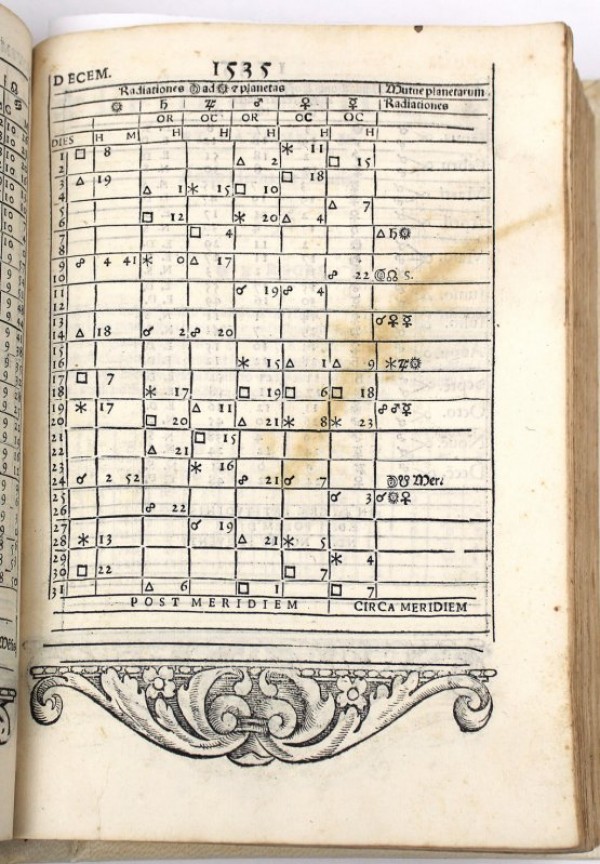 DECEM. 1535
Radiationes ☽ ad ☉ & planetas Mutue planetarum
☉ ♄ ♃ ♂ ♀ ☿ Radiationes
OR OC OR OC OC
DIES H M H H H H H
1 □ 8 ⚹ 11
2 △ 2 □ 15
3 △ 19 □ 18
4 △ 1 ⚹ 15 □ 10
5 △ 7
6 □ 12 ⚹ 20 △ 4
7 □ 4 △ ♄ ☉
8
9 ☍ 4 41 ⚹ 0 △ 17
10 ☍ 22 ☽ ☊ S.
11 ♂ 19 ☍ 4
12
13 ☌ ♀ ☿
14 △ 18 ☌ 2 ☍ 20
15
16 ⚹ 15 △ 1 △ 9 ⚹ ♃ ☉
17 □ 7
18 ⚹ 17 □ 19 □ 6 □ 18
19 ⚹ 17 △ 11 ☍ ♂ ☿
20 □ 20 △ 21 ⚹ 8 ⚹ 23
21 □ 15
22 △ 21
23 ⚹ 16
24 ☌ 2 52 ☍ 21 ☌ 7 ☽ ☋ Mer.
25 ☌ 3 ☌ ☉ ♀
26 ☍ 22
27 ☌ 19
28 ⚹ 13 △ 21 ⚹ 5
29 ⚹ 4
30 □ 22 □ 7
31 △ 6 □ 1 □ 7
POST MERIDIEM CIRCA MERIDIEM